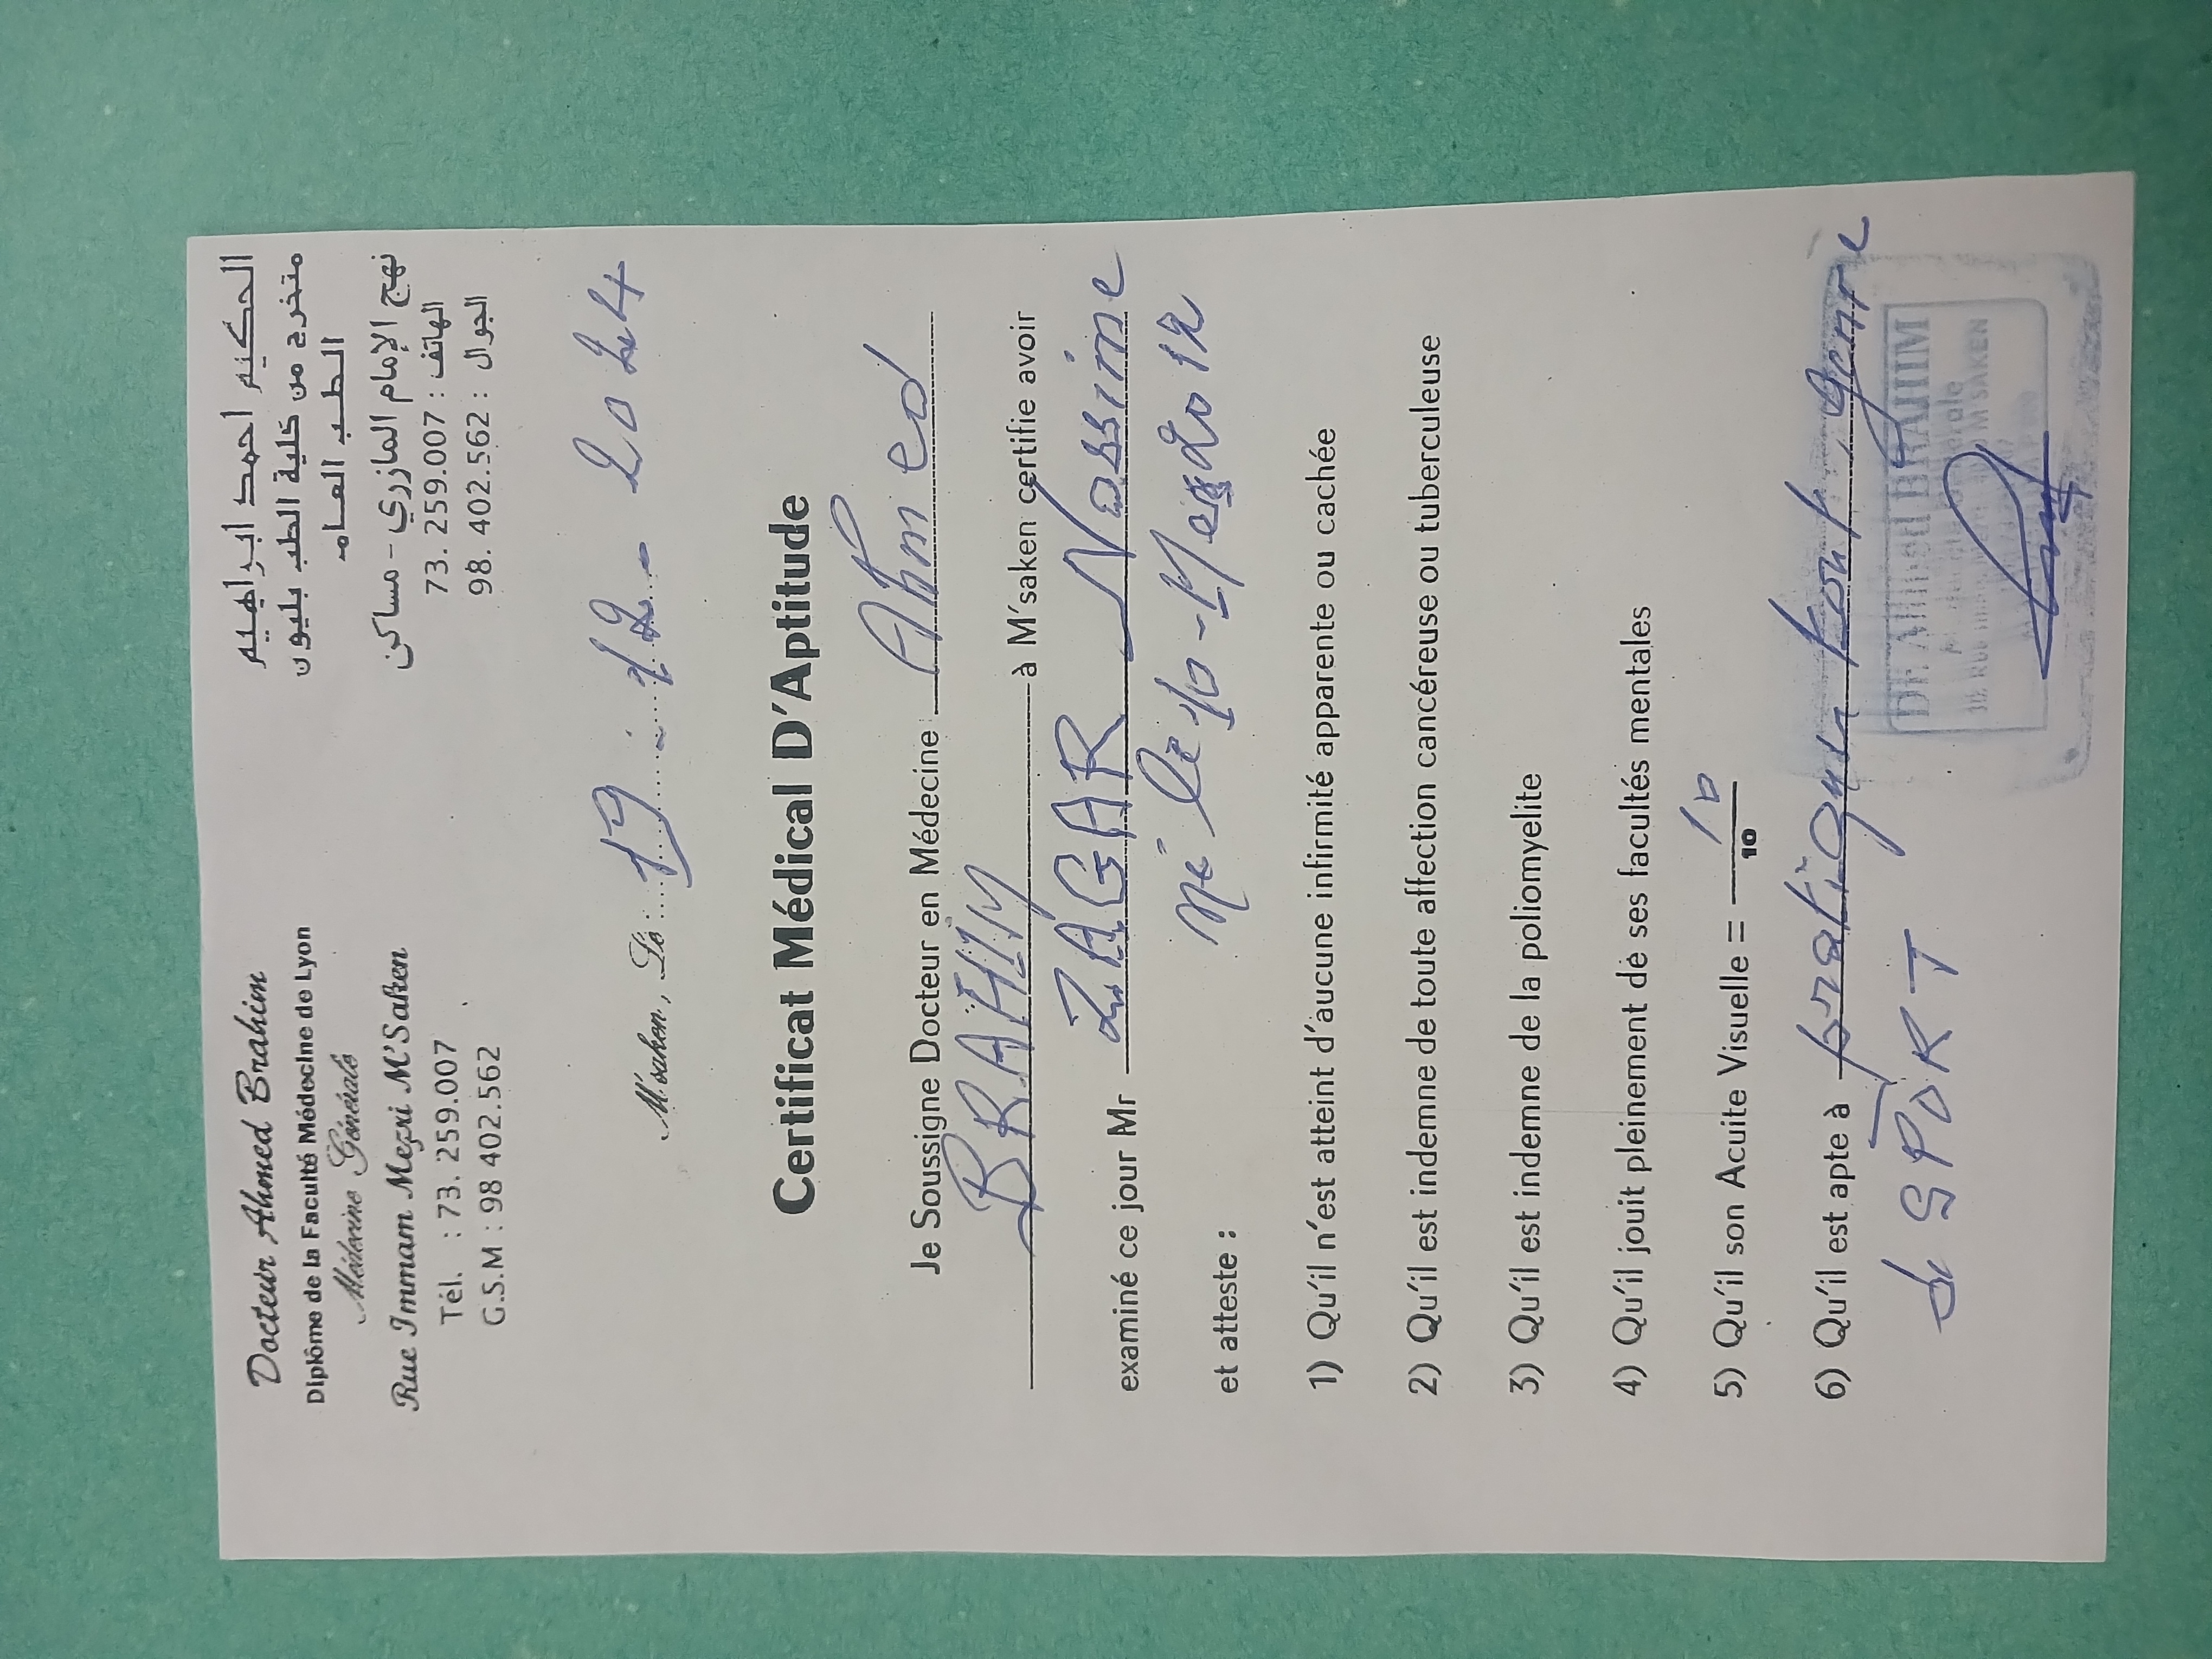 Docteur Ahmed Brahim
Diplôme de la Faculté Médecine de Lyon
Médecine Générale
Rue Immam Mezri M'Saken
Tél. : 73. 259.007
G.S.M : 98 402.562
الحكيم احمد ابراهيم
متخرج من كلية الطب بليون
الطب العام
نهج الإمام المازري - مساكن
الهاتف : 73. 259.007
الجوال : 98. 402.562
M'saken, Le : 19 - 12 - 2024
Certificat Médical D'Aptitude
Je Soussigne Docteur en Médecine : Ahmed
BRAHIM à M'saken certifie avoir
examiné ce jour Mr ZAGAR Nassime
né le 10 -
et atteste :
1) Qu'il n'est atteint d'aucune infirmité apparente ou cachée
2) Qu'il est indemne de toute affection cancéreuse ou tuberculeuse
3) Qu'il est indemne de la poliomyelite
4) Qu'il jouit pleinement de ses facultés mentales
5) Qu'il son Acuite Visuelle = 10/10
6) Qu'il est apte à pratiquer tout genre
de SPORT
Dr Ahmed BRAHIM
M'SAKEN